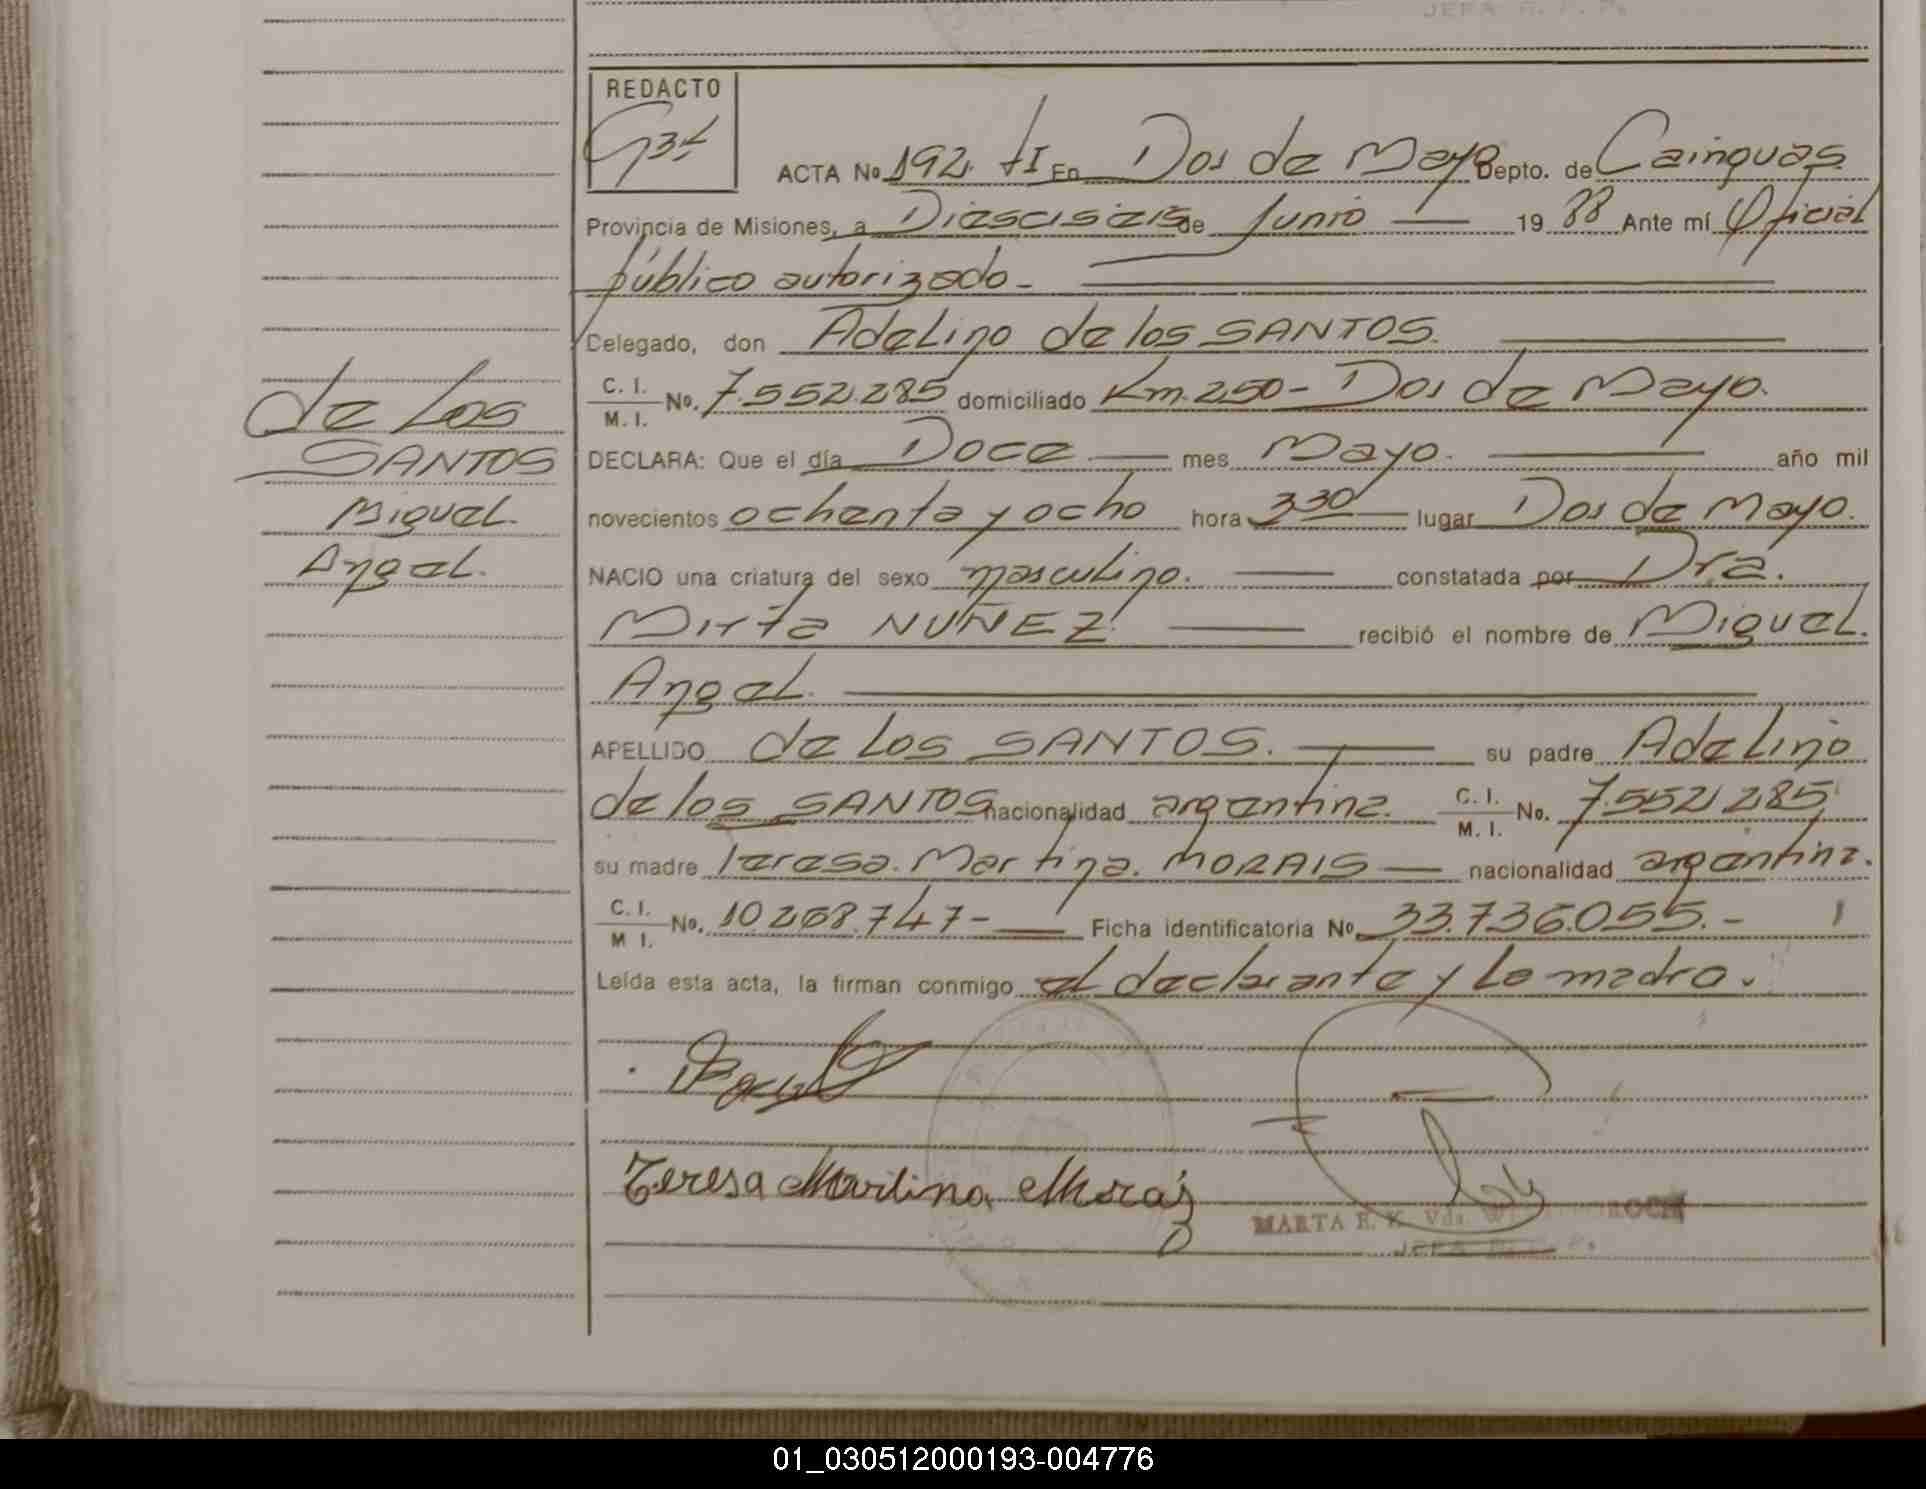 JEFA R. P. P.
REDACTO
ACTA No 192. tI En Dos de Mayo Depto. de Cainguas
Provincia de Misiones, a Diescisieis de Junio 19 88 Ante mí Oficial
público autorizado -
Celegado, don Adelino de los SANTOS.
C. I.
M. I. No. 7.552.285 domiciliado Km. 250 - Dos de Mayo.
de Los
SANTOS
Miguel.
Angel.
DECLARA: Que el día Doce mes Mayo. año mil
novecientos ochenta y ocho hora 3,30 lugar Dos de Mayo.
NACIO una criatura del sexo masculino. constatada por Dra.
Mirta NUÑEZ. recibió el nombre de Miguel.
Angel.
APELLIDO de Los SANTOS. su padre Adelino
de los SANTOS nacionalidad argentina. C. I.
M. I. No. 7.552.285
su madre Teresa. Martina. MORAIS nacionalidad argentina.
C. I.
M I. No. 10.268.747- Ficha identificatoria No 33.736.055.-
Leída esta acta, la firman conmigo el declarante y la madre.
Teresa Martina Morais
MARTA E. K. Vda.
JEFA R. P. P.
01_030512000193-004776